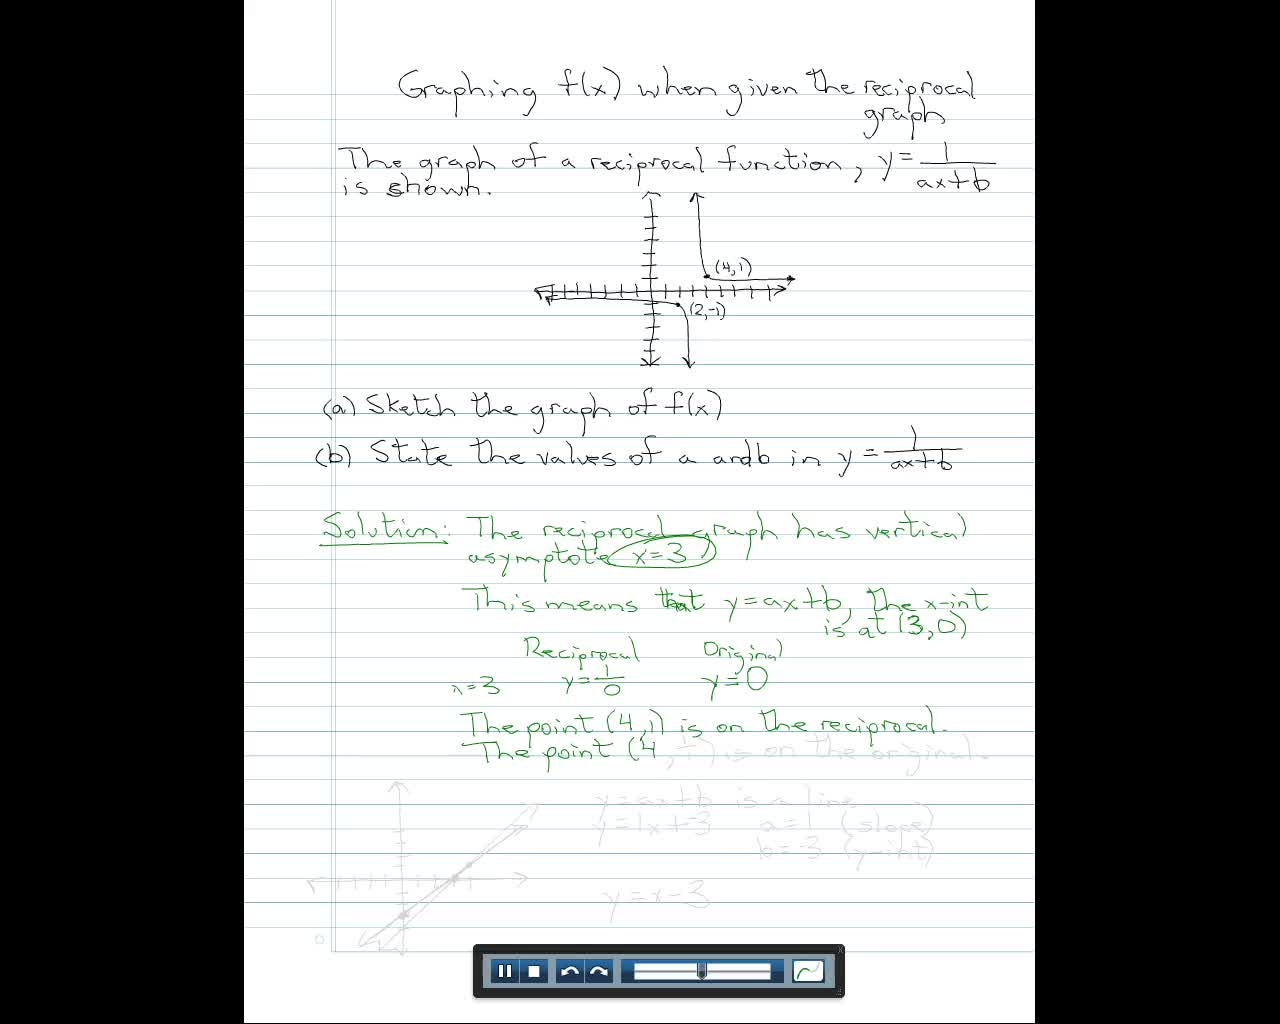 Graphing f(x) when given the reciprocal
graph
The graph of a reciprocal function, y = 1/(ax+b)
is shown.
(4,1)
(2,-1)
(a) Sketch the graph of f(x)
(b) State the values of a and b in y = 1/(ax+b)
Solution: The reciprocal graph has vertical
asymptote x=3
This means that y=ax+b, the x-int
is at (3,0)
Reciprocal Original
x=3 y=1/0 y=0
The point (4,1) is on the reciprocal.
The point (4, 1/1) is on the original.
y=ax+b is a line
y=1x+-3 a=1 (slope)
b=-3 (y-int)
y=x-3